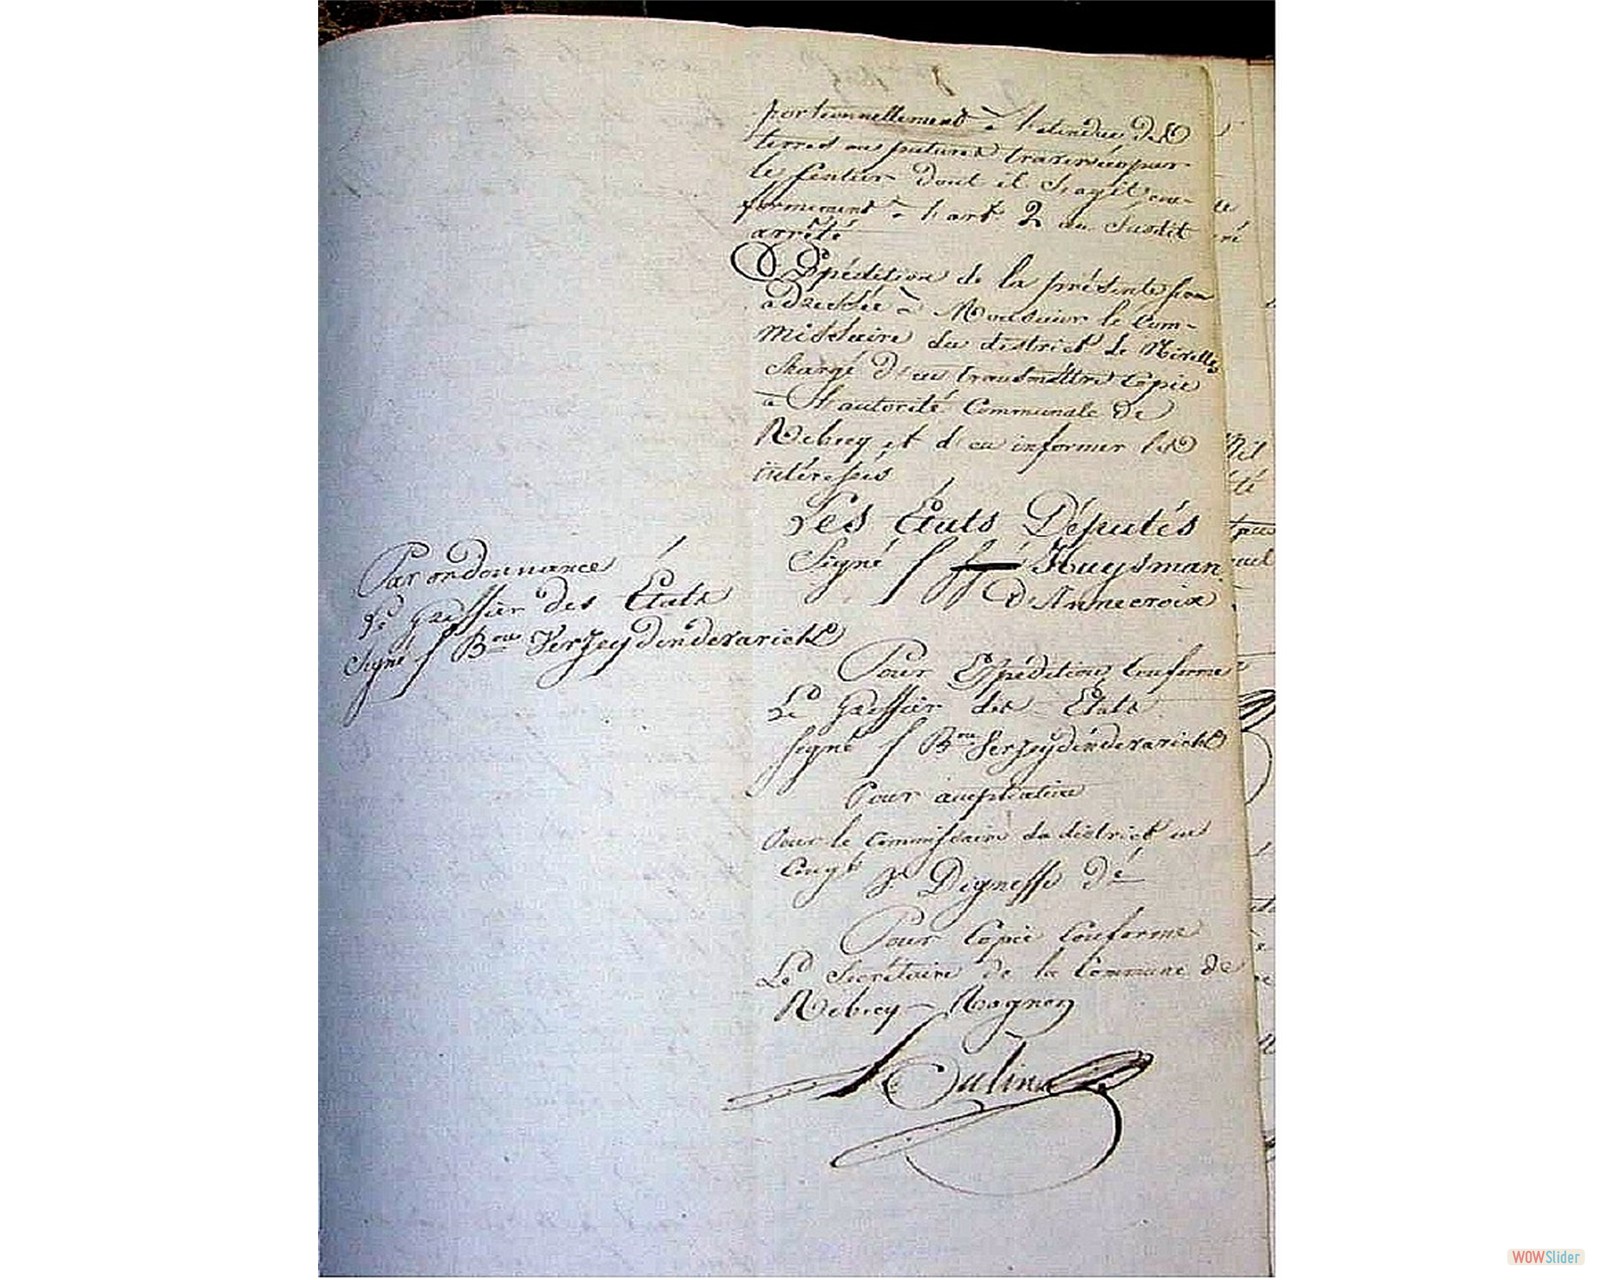 portionnellement à l'étendue des
terres ou patures traversées par
le sentier dont il s'agit con-
formement à l'art 2 du susdit
arrêté
Expédition de la présente sera
adressée à Monsieur le Com-
missaire du district de Nivelles
chargé d'en transmettre Copie
à l'autorité Communale de
Rebecq et d'en informer les
intéressés
Les États Députés
Signé Huysman
D'Annecroix
Par ordonnance
Le Greffier des États
Signé Bon Verzeydenderarick
Pour Expédition Conforme
Le Greffier des États
Signé Bon Verzeydenderarick
Pour ampliation
Pour le Commissaire du district en
Congé Dignesse
Pour Copie Conforme
Le Secrétaire de la Commune de
Rebecq-Rognon
WOWSlider